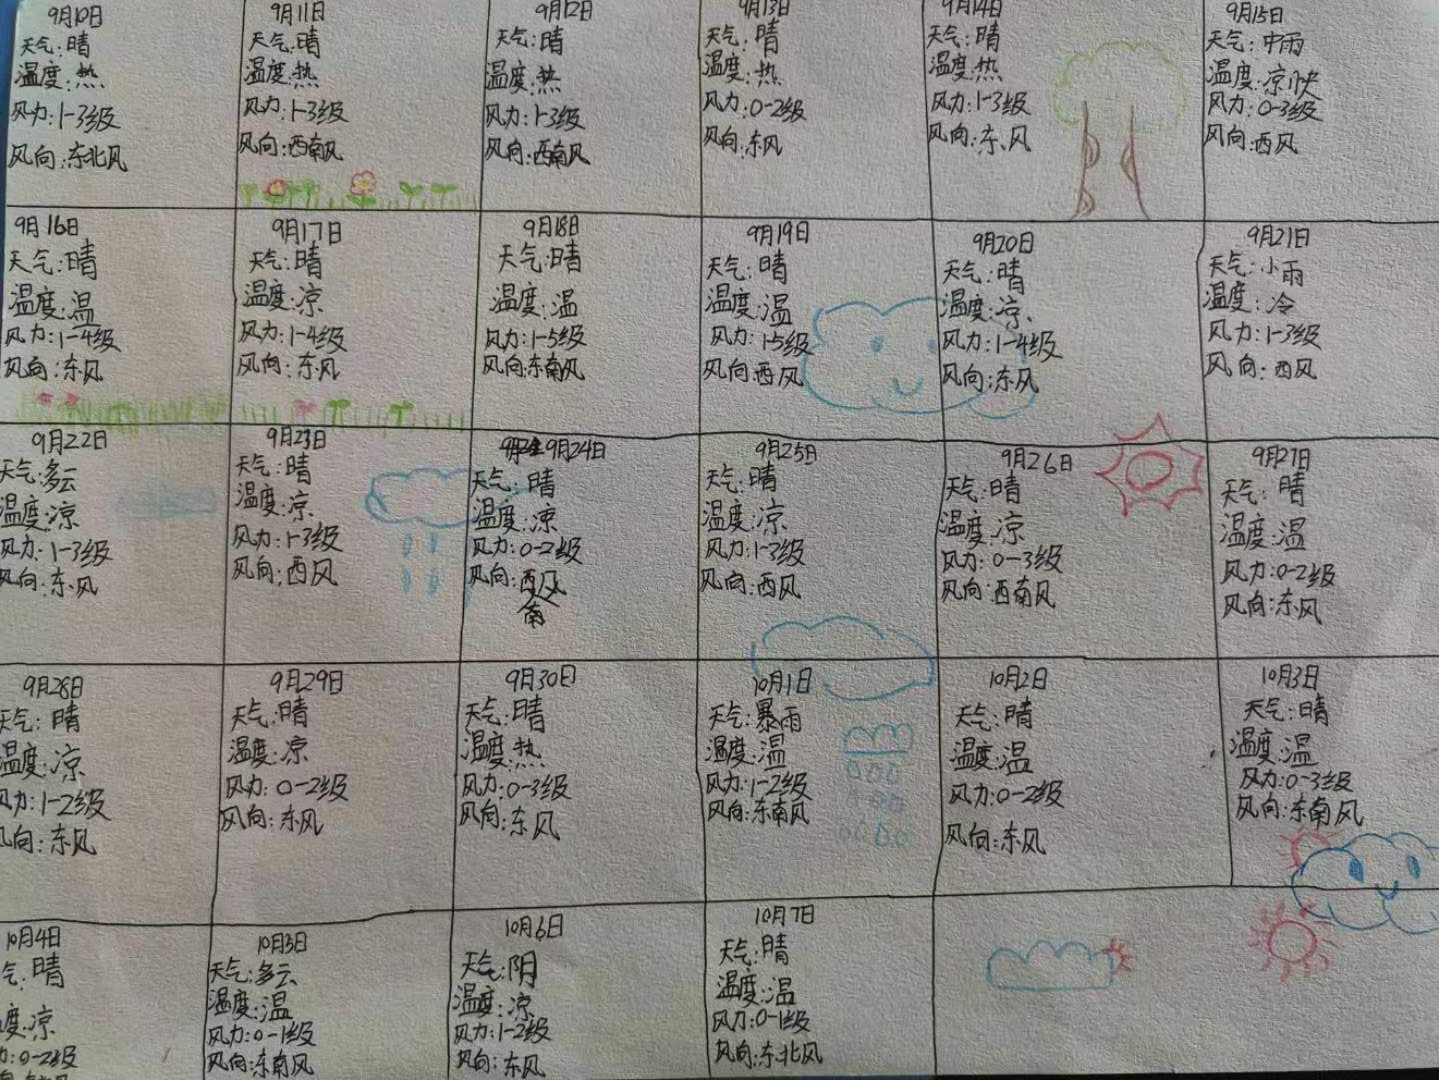 9月10日
天气:晴
温度:热
风力:1-3级
风向:东北风
9月11日
天气:晴
温度:热
风力:1-3级
风向:西南风
9月12日
天气:晴
温度:热
风力:1-3级
风向:西南风
9月13日
天气:晴
温度:热
风力:0-2级
风向:东风
9月14日
天气:晴
温度:热
风力:1-3级
风向:东风
9月15日
天气:中雨
温度:凉快
风力:0-3级
风向:西风
9月16日
天气:晴
温度:温
风力:1-4级
风向:东风
9月17日
天气:晴
温度:凉
风力:1-4级
风向:东风
9月18日
天气:晴
温度:温
风力:1-5级
风向:东南风
9月19日
天气:晴
温度:温
风力:1-5级
风向:西风
9月20日
天气:晴
温度:凉
风力:1-4级
风向:东风
9月21日
天气:小雨
温度:冷
风力:1-3级
风向:西风
9月22日
天气:多云
温度:凉
风力:1-3级
风向:东风
9月23日
天气:晴
温度:凉
风力:1-3级
风向:西风
9月24日
天气:晴
温度:凉
风力:0-2级
风向:西风
南
9月25日
天气:晴
温度:凉
风力:1-3级
风向:西风
9月26日
天气:晴
温度:凉
风力:0-3级
风向:西南风
9月27日
天气:晴
温度:温
风力:0-2级
风向:东风
9月28日
天气:晴
温度:凉
风力:1-2级
风向:东风
9月29日
天气:晴
温度:凉
风力:0-2级
风向:东风
9月30日
天气:晴
温度:热
风力:0-3级
风向:东风
10月1日
天气:暴雨
温度:温
风力:1-2级
风向:东南风
10月2日
天气:晴
温度:温
风力:0-2级
风向:东风
10月3日
天气:晴
温度:温
风力:0-3级
风向:东南风
10月4日
气:晴
度:凉
力:0-2级
10月3日
天气:多云
温度:温
风力:0-1级
风向:东南风
10月6日
天气:阴
温度:凉
风力:1-2级
风向:东风
10月7日
天气:晴
温度:温
风力:0-1级
风向:东北风